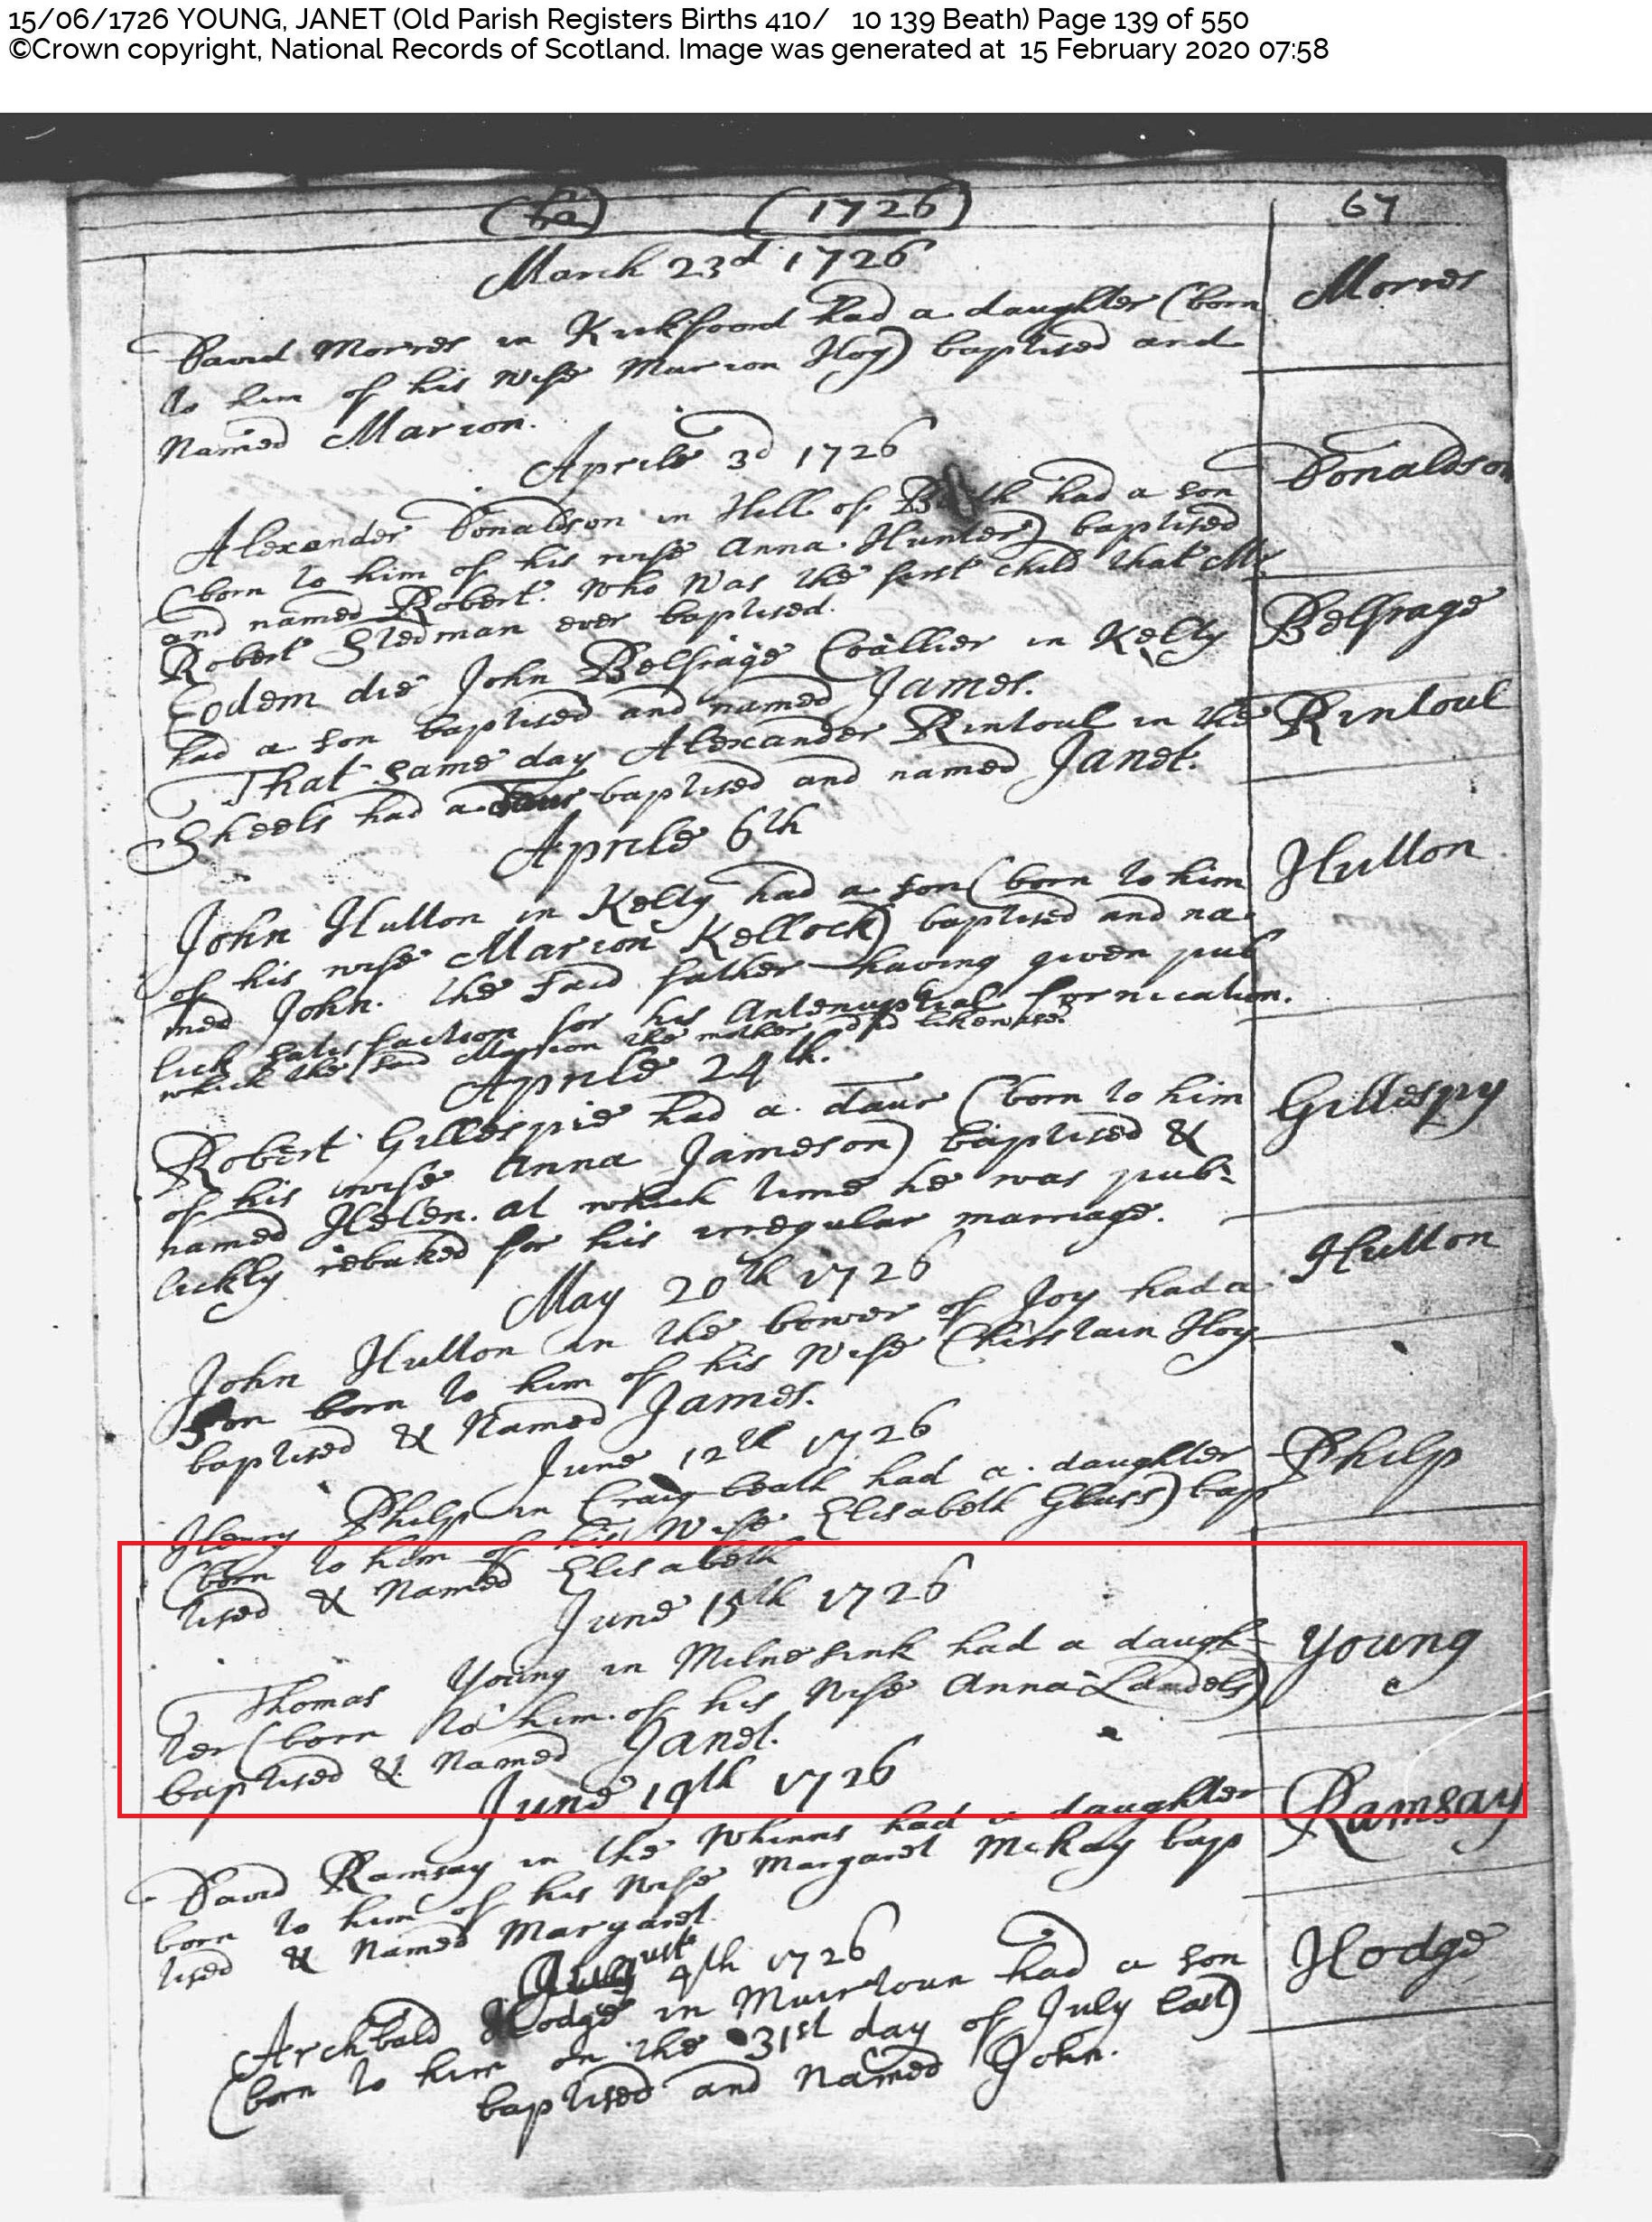 15/06/1726 YOUNG, JANET (Old Parish Registers Births 410/ 10 139 Beath) Page 139 of 550
©Crown copyright, National Records of Scotland. Image was generated at 15 February 2020 07:58
(1726) 67
March 23d 1726
David Morres in had a daughter (born Morres
to him of his wife Marion Hoy) baptised and
Named Marion.
Aprile 3d 1726
Alexander Donaldson in Hill of Beath had a son Donaldson
(born to him of his wife Anna Hunter) baptised
and named Robert. who was the first child that Mr
Robert Stedman ever baptised.
Eodem die John Belfrage Coallier in Kelty Belfrage
had a son baptised and named James.
That same day Alexander Rintoul in the Rintoul
Sheels had a daur baptised and named Janet.
Aprile 6th
John Hutton in Kelty had a son (born to him Hutton
of his wife Marion Kellock) baptised and na
med John. the said father having given pub
lick satisfaction for his Antenuptial fornication.
which the said Marion the mother did likewise
Aprile 24th.
Robert Gillespie had a daur (born to him Gillespy
of his wife Anna Jameson) baptised &
named Helen. at which time he was pub-
lickly rebuked for his irregular marriage.
May 20th 1726
John Hutton in the bower of Joy had a Hutton
son born to him of his Wife Christain Hoy
baptised & Named James.
June 12th 1726
Henry Philp in Craigbeath had a daughter Philp
(born to him of his Wife Elisabeth Glass) bap
tised & Named Elisabeth
June 15th 1726
Thomas Young in Milnesink had a daugh- Young
ter (born to him of his Wife Anna Landels)
baptised & Named Janet.
June 19th 1726
David Ramsay in the Whinns had a daughter Ramsay
born to him of his Wife Margaret McKay bap
tised & Named Margaret.
August 4th 1726
Archbald Hodge in Muirtoun had a son Hodge
(born to him on the 31st day of July last)
baptised and Named John.